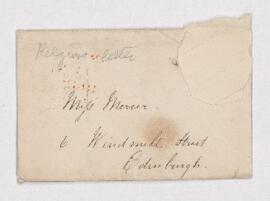 Religious letter
Miss Mercer.
6 Windmill Street
Edinburgh.